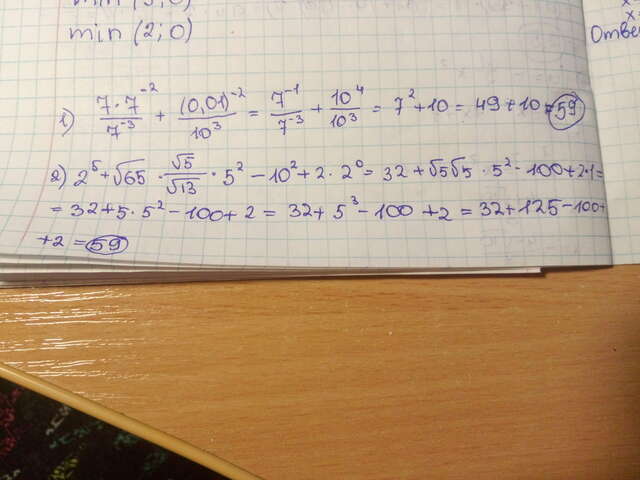 min (3; 0)
min (2; 0)
x=
Отве
1) 7·7⁻²/7⁻³ + (0,01)⁻²/10³ = 7⁻¹/7⁻³ + 10⁴/10³ = 7² + 10 = 49 + 10 = 59
2) 2⁵ + √65 · √5/√13 · 5² − 10² + 2 · 2⁰ = 32 + √5√5 · 5² − 100 + 2·1 =
= 32 + 5 · 5² − 100 + 2 = 32 + 5³ − 100 + 2 = 32 + 125 − 100 +
+ 2 = 59